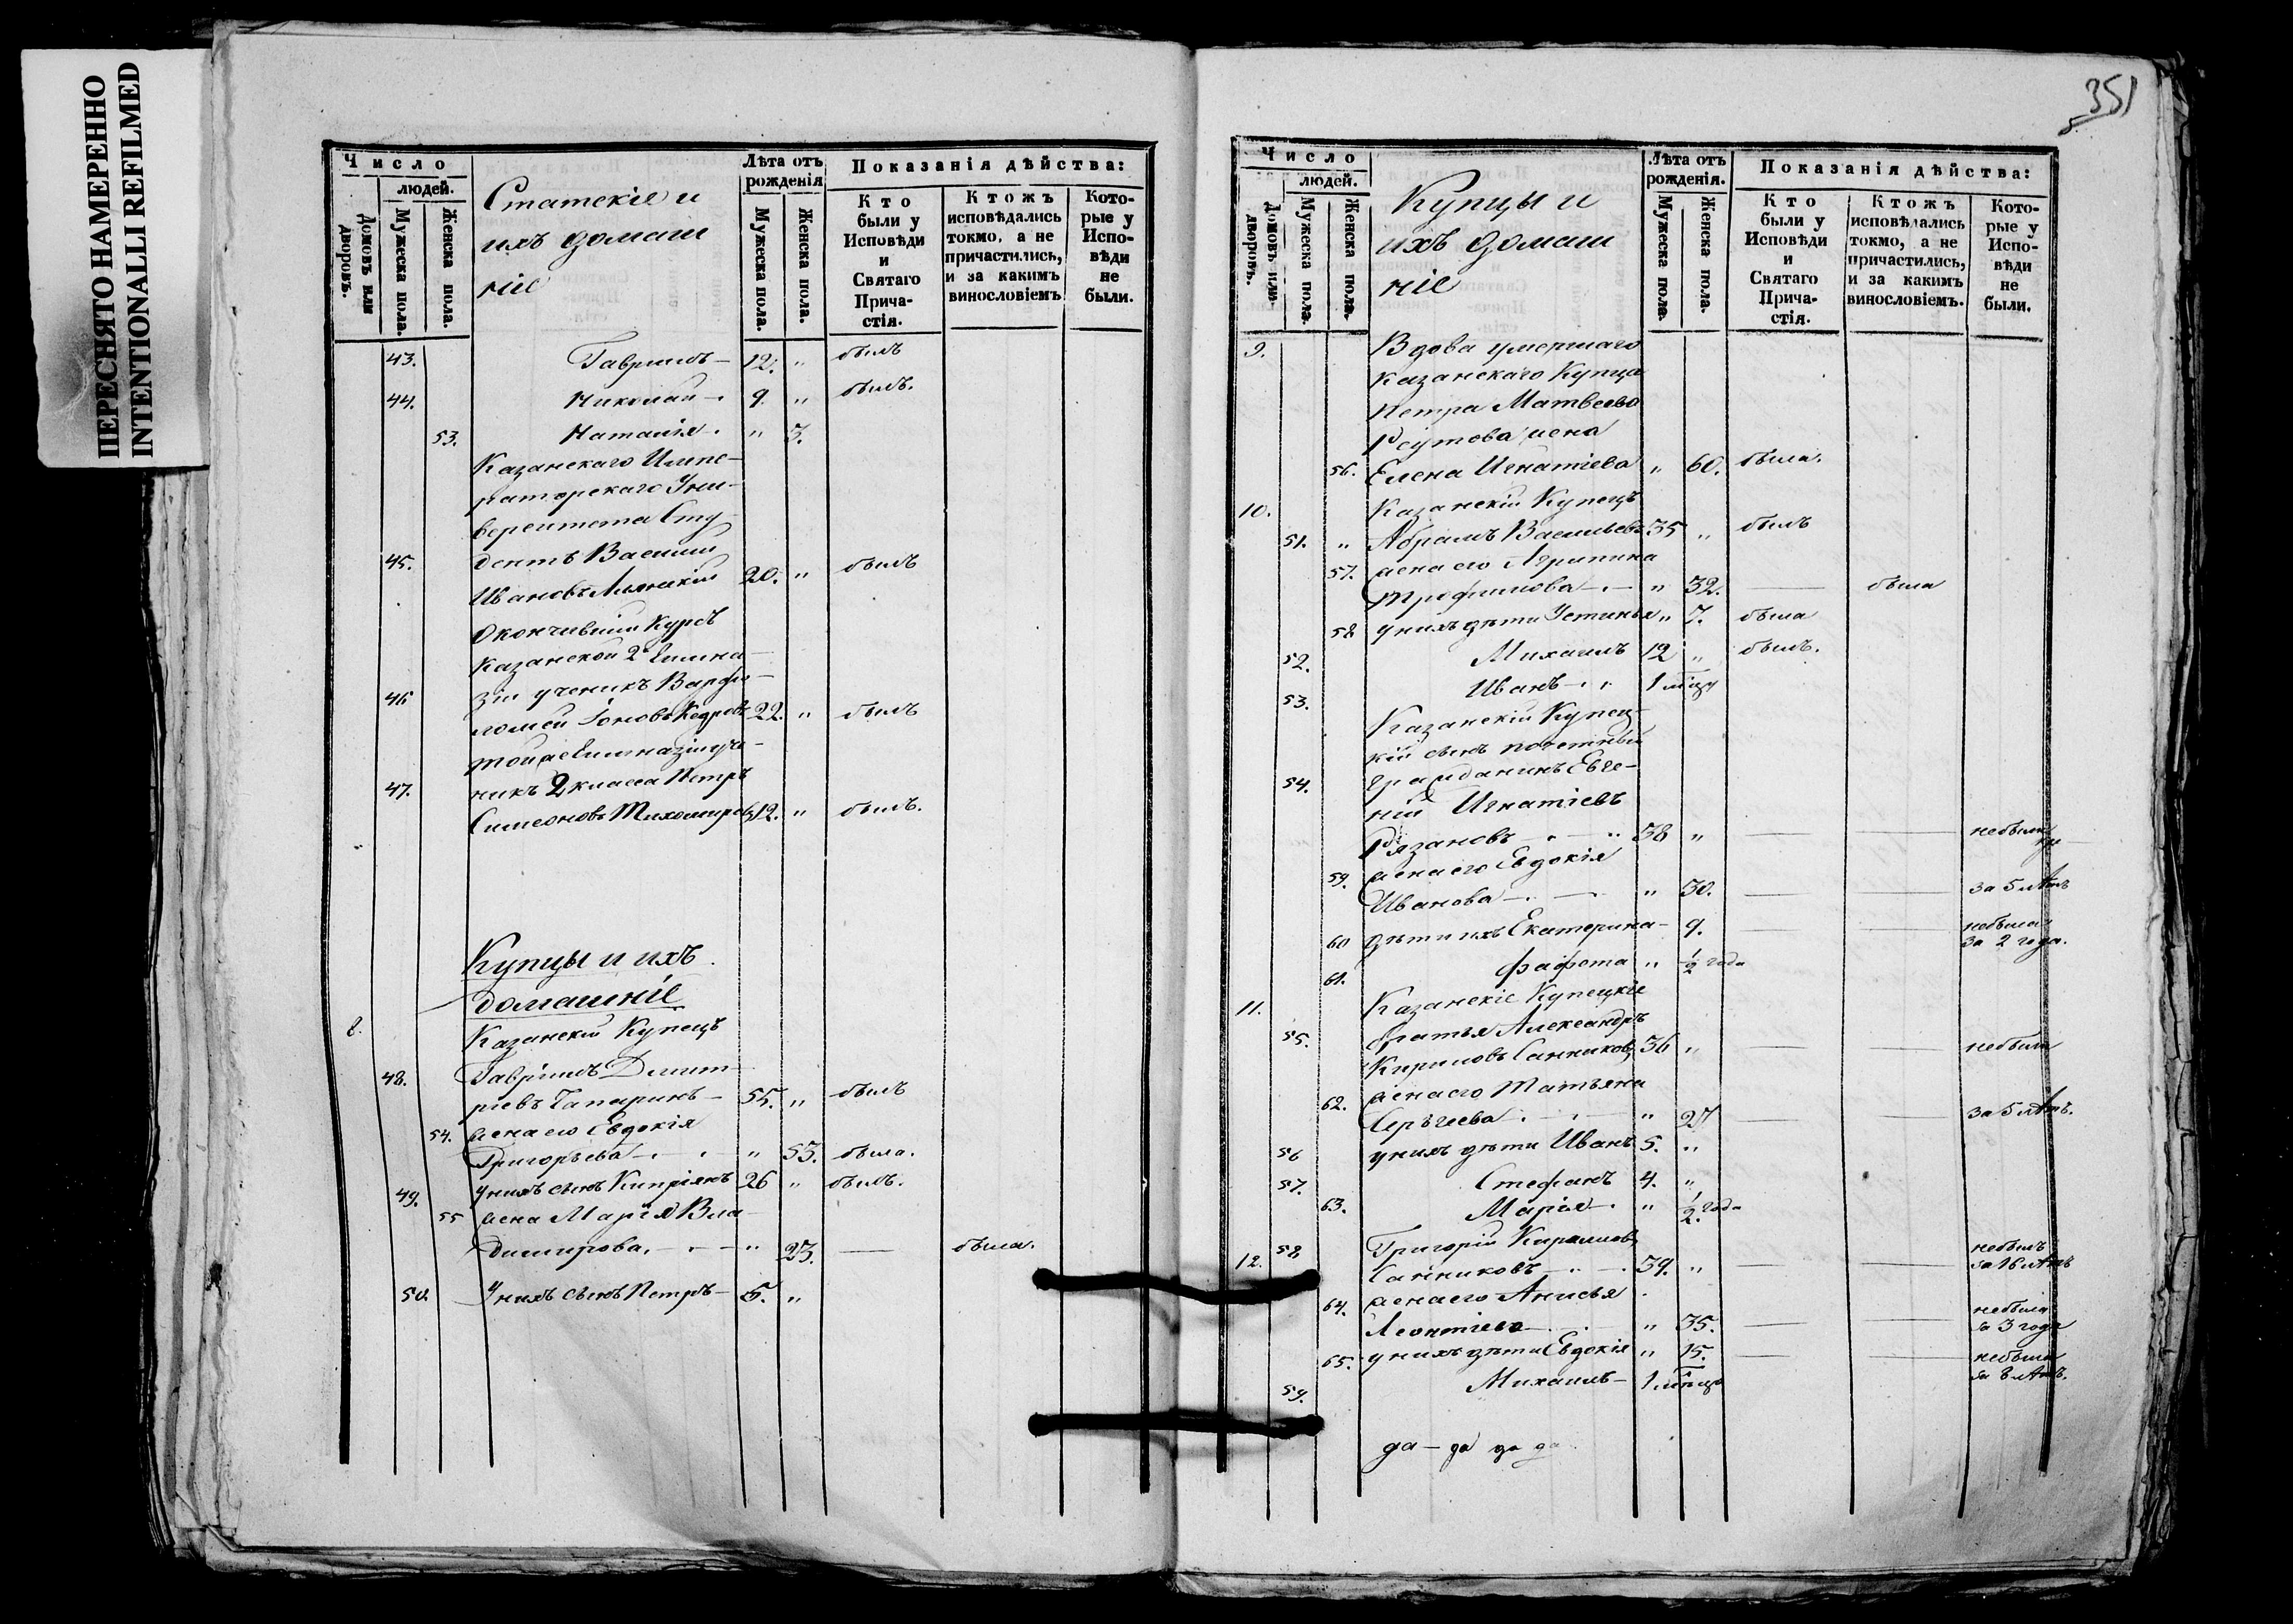 ПЕРЕСНЯТО НАМЕРЕННО
INTENTIONALLI REFILMED
Число
людей.
Домовъ или дворовъ.
Мужеска пола.
Женска пола.
Статскіе и
ихъ домаш
ніе
Лѣта отъ рожденія
Мужеска пола.
Женска пола.
Показанія дѣйства:
Кто были у Исповѣди и Святаго Прича-стія.
Ктожъ исповѣдались токмо, а не причастились, и за какимъ винословіемъ
Кото-рые у Испо-вѣди не были.
43. Гавріилъ — 12. " былъ
44. Николай — 9. " былъ.
53. Наталія . " 3.
Казанскаго Импе-
раторскаго Уни-
верситета Сту
45. дентъ Василій
Ивановъ 20. " былъ
Окончившій курсъ
Казанской 2й Гимна-
46 зіи ученикъ Варфо-
ломей Іоновъ Кедровъ 22. " былъ
той же Гимназіи уче-
47. никъ 2 класса Петръ
Симеоновъ Тихомировъ 12. " былъ.
Купцы и ихъ
домашніе
8. Казанскій Купецъ
48. Гавріилъ Димит-
ріевъ Чапаринъ — 55. " былъ
54. жена его Евдокія
Григорьева — " 53. была.
49. у нихъ сынъ Кипріянъ 26 " былъ.
55 жена Марія Вла-
димирова. — " 23. — была.
50. У нихъ сынъ Петръ — 5. "
351
Число
людей.
Домовъ или дворовъ.
Мужеска пола.
Женска пола.
Купцы и
ихъ домаш
ніе
Лѣта отъ рожденія.
Мужеска пола.
Женска пола.
Показанія дѣйства:
Кто были у Исповѣди и Святаго Прича-стія.
Ктожъ исповѣдались токмо, а не причастились, и за какимъ винословіемъ.
Кото-рые у Испо-вѣди не были.
9. Вдова умершаго
Казанскаго Купца
Петра Матвеева
Реутова жена
56. Елена Игнатіева " 60. была.
10. Казанскій Купецъ
51. " Абрамъ Васильевъ 35 " былъ
57. жена его Агрипина
Трофимова — " 32. — была
58 у нихъ дѣти Устинья " 7. была
52. Михаилъ 12 " былъ.
53. Иванъ 1 мѣсяц
Казанскій Купец-
кій сынъ почетный
54. гражданинъ Евге-
ній Игнатіевъ
Рязановъ — 38 " — — небыли
59. жена его Евдокія
Иванова — " 30. — — за 5 лѣтъ
60 дѣти ихъ Екатерина — 9. — — небыла
за 2 года.
61. " ½ года
11. Казанскіе Купецкіе
55. братья Александръ
Кириловъ Санниковъ 36 " — — небыли
62. жена его Татьяна
Сергѣева " 27 — — за 5 лѣтъ.
56 у нихъ дѣти Иванъ 5. "
57. Стефанъ 4. "
63. Марія " ½ года
12. 58 Григорій Кириловъ
Санниковъ — 39. " — — небылъ
за 16 лѣтъ
64. жена его Анисья
Леонтіева " 35. — — небыла
за 3 года
65. у нихъ дѣти Евдокія " 15. — — небыла
за 8 лѣтъ.
59. Михаилъ — 1 мѣсяц
да — да да да